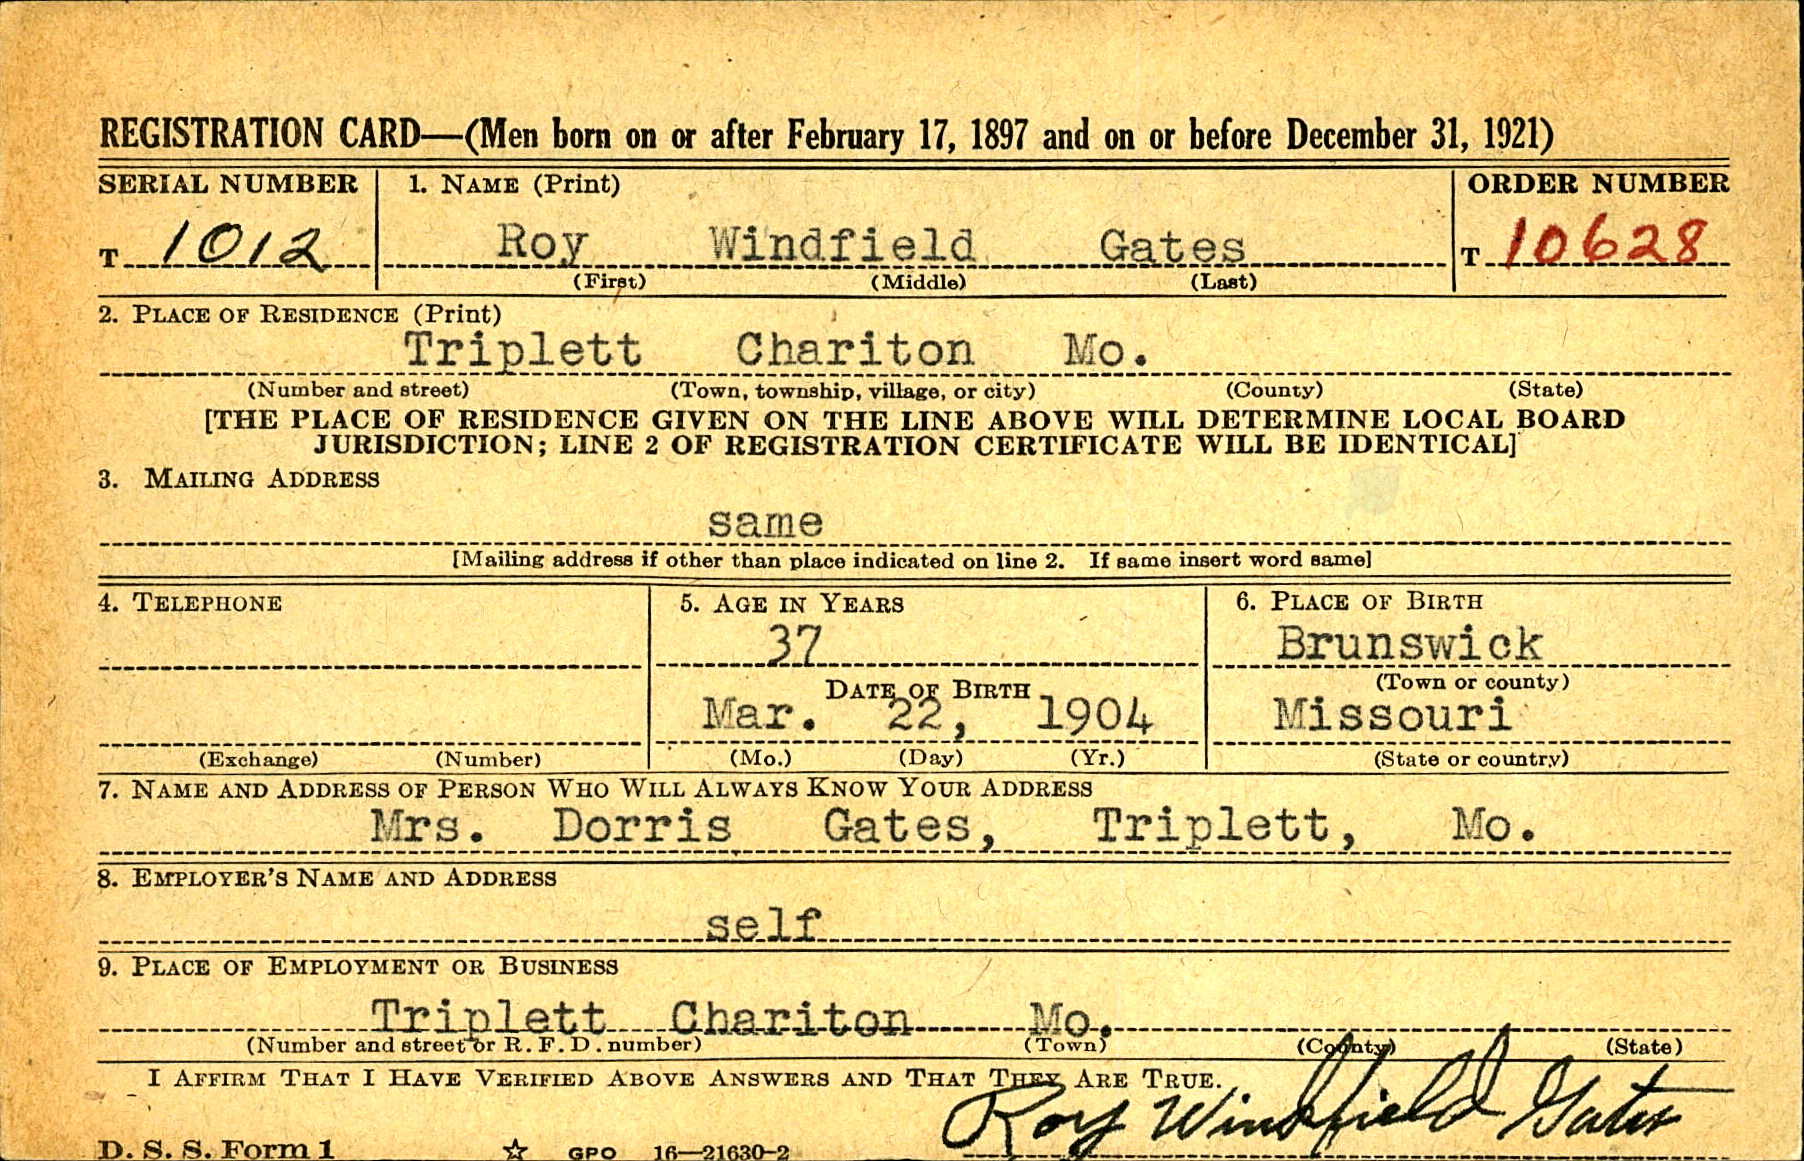 REGISTRATION CARD—(Men born on or after February 17, 1897 and on or before December 31, 1921)
SERIAL NUMBER 1. NAME (Print) ORDER NUMBER
T 1012 Roy Windfield Gates T 10628
(First) (Middle) (Last)
2. PLACE OF RESIDENCE (Print)
Triplett Chariton Mo.
(Number and street) (Town, township, village, or city) (County) (State)
[THE PLACE OF RESIDENCE GIVEN ON THE LINE ABOVE WILL DETERMINE LOCAL BOARD
JURISDICTION; LINE 2 OF REGISTRATION CERTIFICATE WILL BE IDENTICAL]
3. MAILING ADDRESS
same
[Mailing address if other than place indicated on line 2. If same insert word same]
4. TELEPHONE 5. AGE IN YEARS 6. PLACE OF BIRTH
37 Brunswick
DATE OF BIRTH (Town or county)
Mar. 22, 1904 Missouri
(Exchange) (Number) (Mo.) (Day) (Yr.) (State or country)
7. NAME AND ADDRESS OF PERSON WHO WILL ALWAYS KNOW YOUR ADDRESS
Mrs. Dorris Gates, Triplett, Mo.
8. EMPLOYER'S NAME AND ADDRESS
self
9. PLACE OF EMPLOYMENT OR BUSINESS
Triplett Chariton Mo.
(Number and street or R. F. D. number) (Town) (County) (State)
I AFFIRM THAT I HAVE VERIFIED ABOVE ANSWERS AND THAT THEY ARE TRUE.
Roy Windfield Gates
D. S. S. Form 1 ☆ GPO 16—21630-2